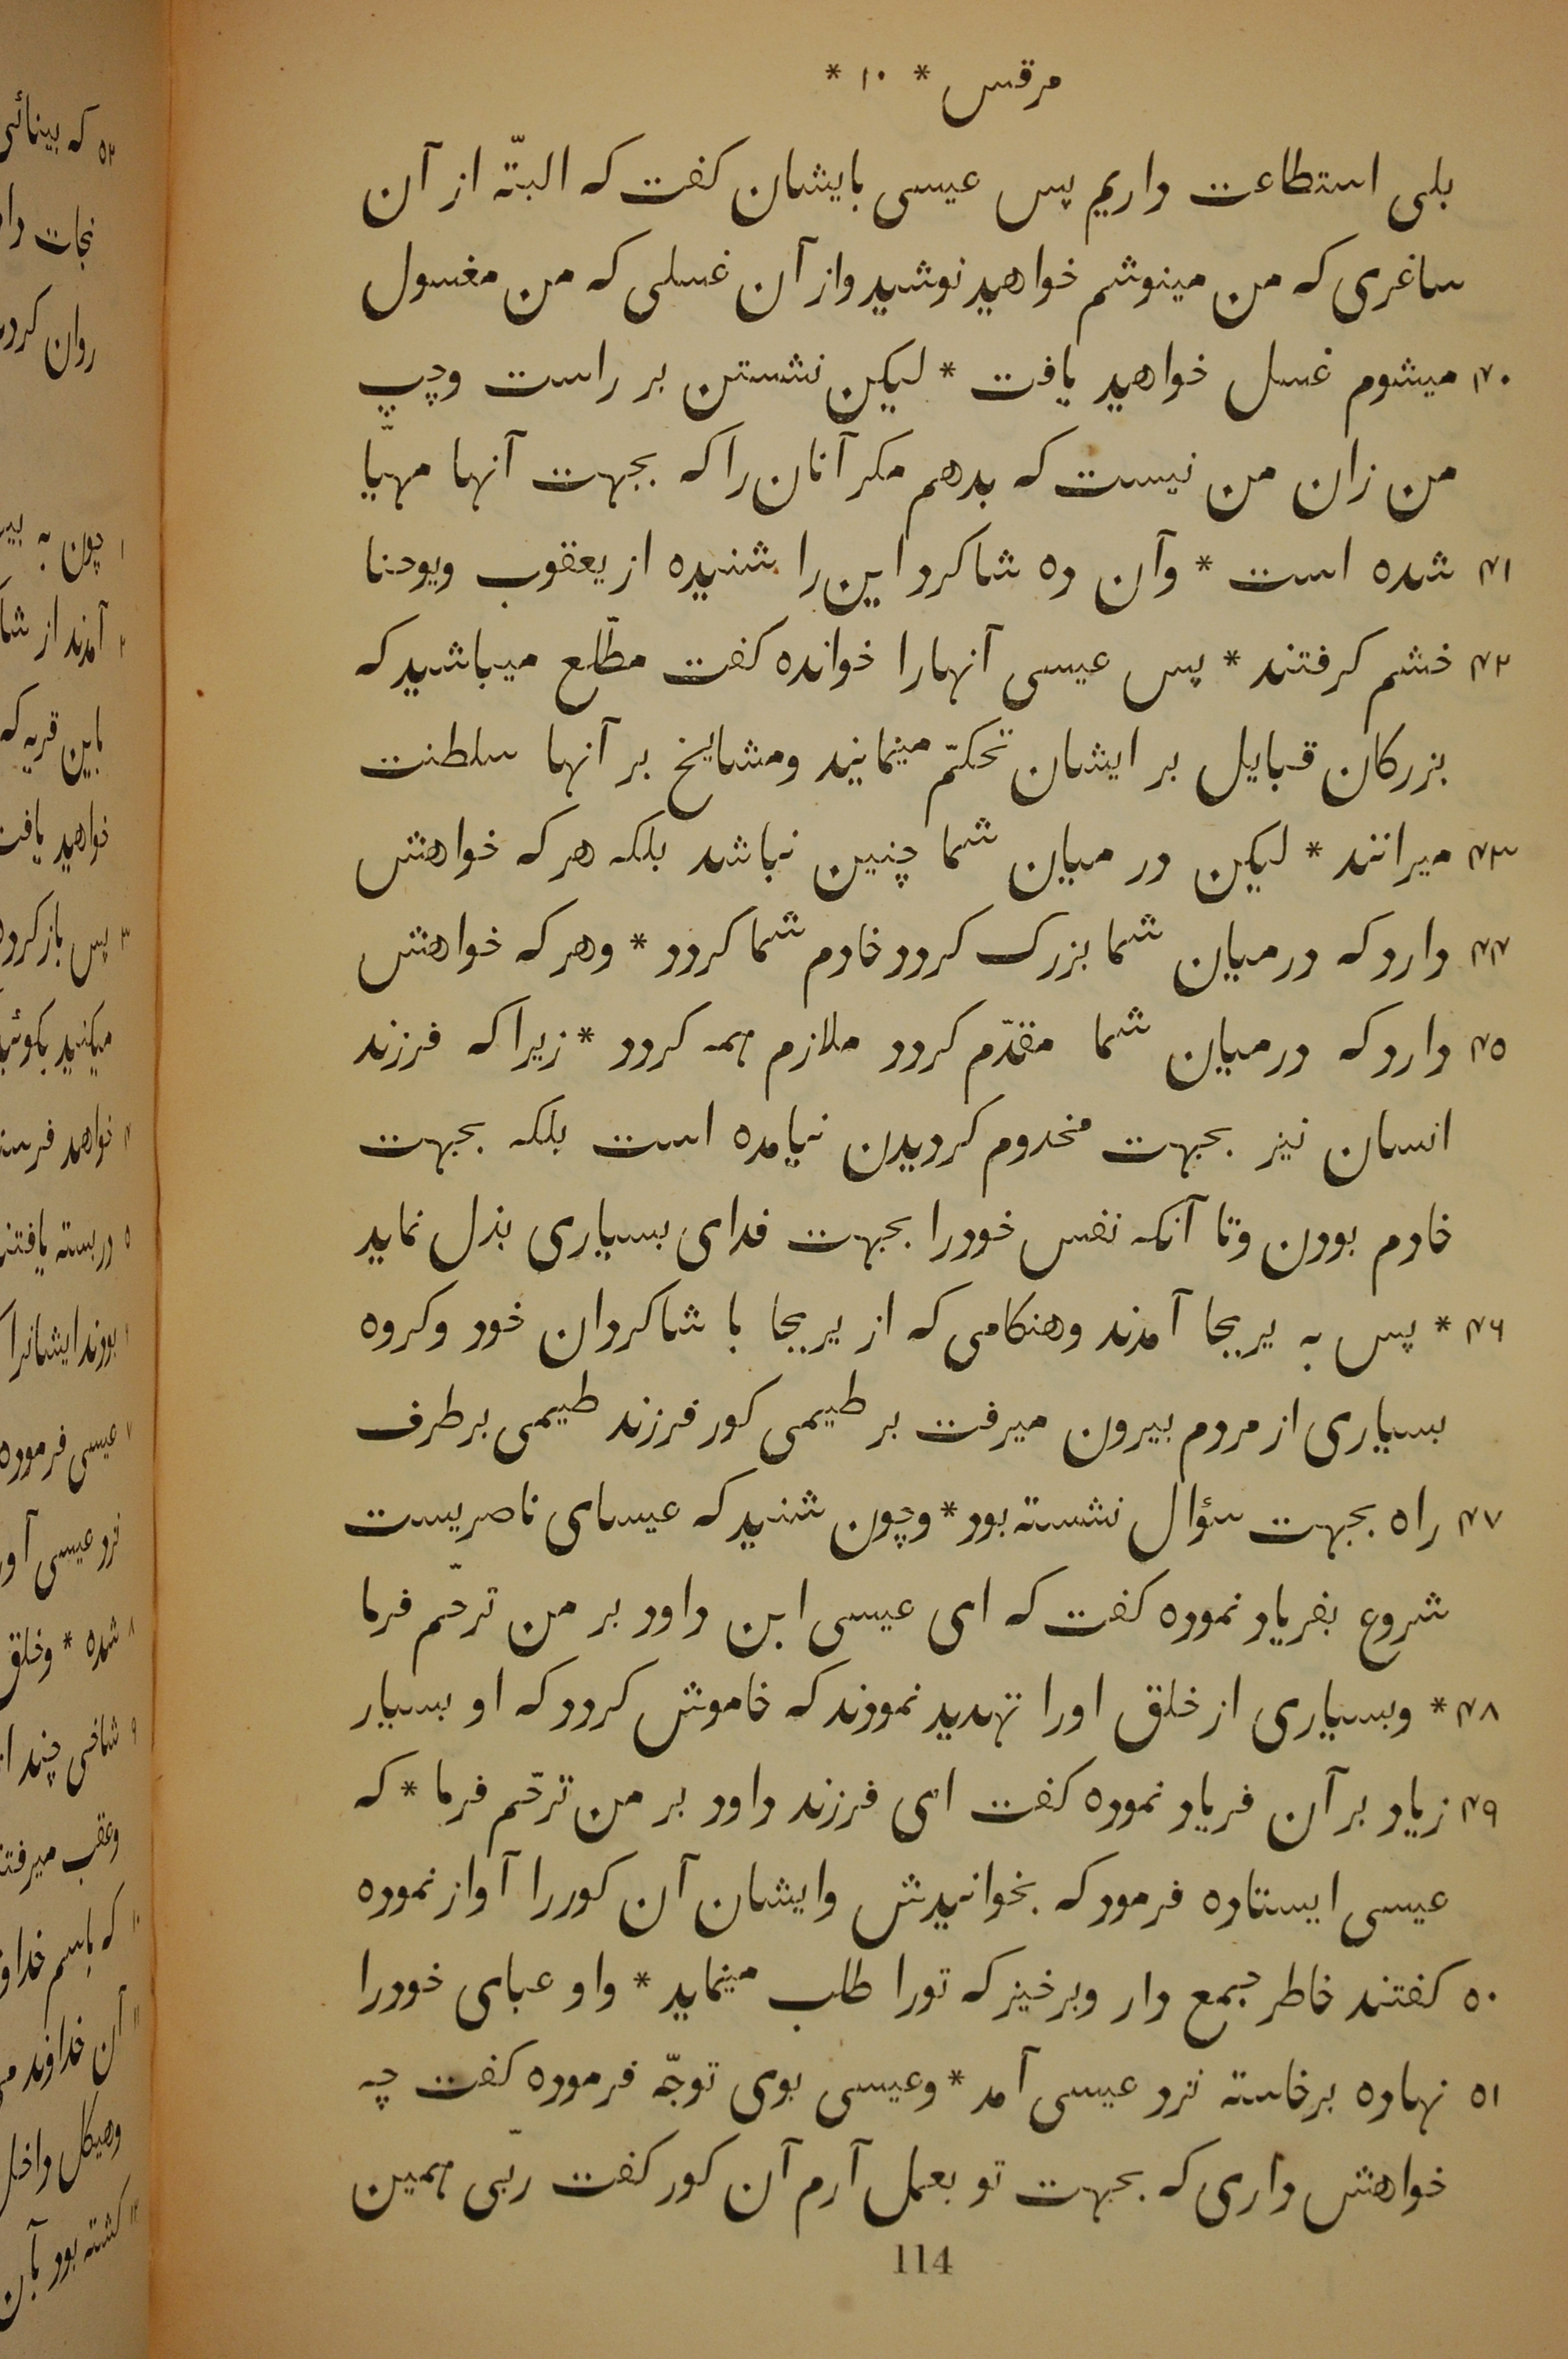 مرقس * ۱۰ *
بلی استطاعت داریم پس عیسی بایشان کفت که البتّه از آن
ساغری که من مینوشم خواهید نوشید واز آن غسلی که من مغسول
۴۰ میشوم غسل خواهید یافت * لیکن نشستن بر راست وچپ
من زان من نیست که بدهم مکر آنان را که بجهت آنها مهیّا
۴۱ شده است * وآن ده شاکرد این را شنیده از یعقوب ویوحنا
۴۲ خشم کرفتند * پس عیسی آنهارا خوانده کفت مطّلع میباشید که
بزرکان قبایل بر ایشان تحکّم مینمایند ومشایخ بر آنها سلطنت
۴۳ میرانند * لیکن در میان شما چنین نباشد بلکه هر که خواهش
۴۴ دارد که درمیان شما بزرک کردد خادم شما کردد * وهر که خواهش
۴۵ دارد که درمیان شما مقدّم کردد ملازم همه کردد * زیرا که فرزند
انسان نیز بجهت مخدوم کردیدن نیامده است بلکه بجهت
خادم بودن وتا آنکه نفس خودرا بجهت فدای بسیاری بذل نماید
۴۶ * پس به یریحا آمدند وهنکامی که از یریحا با شاکردان خود وکروه
بسیاری از مردم بیرون میرفت بر طیمی کور فرزند طیمی بر طرف
۴۷ راه بجهت سؤال نشسته بود * وچون شنید که عیسای ناصریست
شروع بفریاد نموده کفت که ای عیسی ابن داود بر من ترحّم فرما
۴۸ * وبسیاری از خلق اورا تهدید نمودند که خاموش کردد که او بسیار
۴۹ زیاد بر آن فریاد نموده کفت ای فرزند داود بر من ترحّم فرما * که
عیسی ایستاده فرمود که بخوانیدش وایشان آن کوررا آواز نموده
۵۰ کفتند خاطر جمع دار وبرخیز که تورا طلب مینماید * واو عبای خودرا
۵۱ نهاده برخاسته نزد عیسی آمد * وعیسی بوی توجّه فرموده کفت چه
خواهش داری که بجهت تو بعمل آرم آن کور کفت ربّی همین
114
۵۲ که بینائی
نجات
روان
۱ چون به
۲ آمدند از
باین قریه که
خواهید یافت
۳ پس باز
میکنید بکوئید
۴ خواهد
۵ در بسته یافتند
۶ بودند ایشانرا
۷ عیسی فرموده
نزد عیسی
۸ شده * وخلق
۹ شاخی چند
وعقب
۱۰ که باسم
۱۱ آن خداوند
وهیکل داخل
۱۲ کشته بود بآن